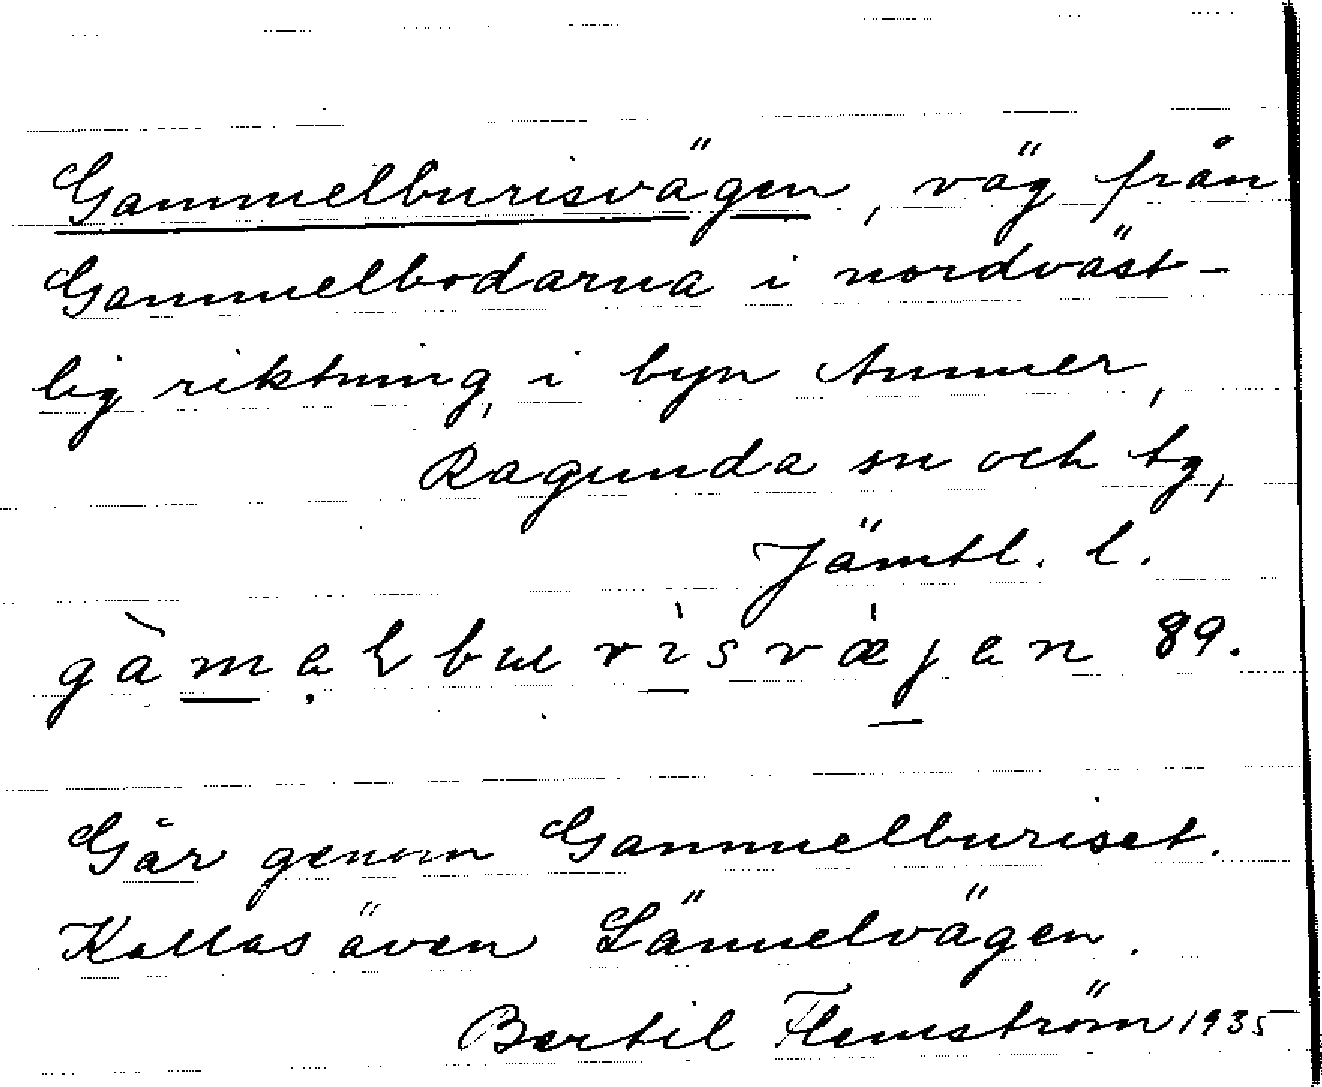 Gammelburisvägen, väg från
Gammelbodarna i nordväst-
lig riktning, i byn Ammer,
Ragunda sn och tg,
Jämtl. l.
gàmęlburisvæjen 89.
Går genom Gammelburiset.
Kallas även Lännelvägen.
Bertil Flemström 1935